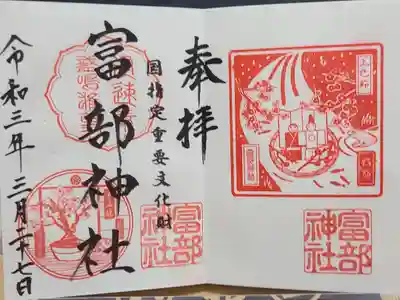 奉拝
国指定重要文化財
富部神社
令和三年三月二十七日
富部
神社
富部
神社